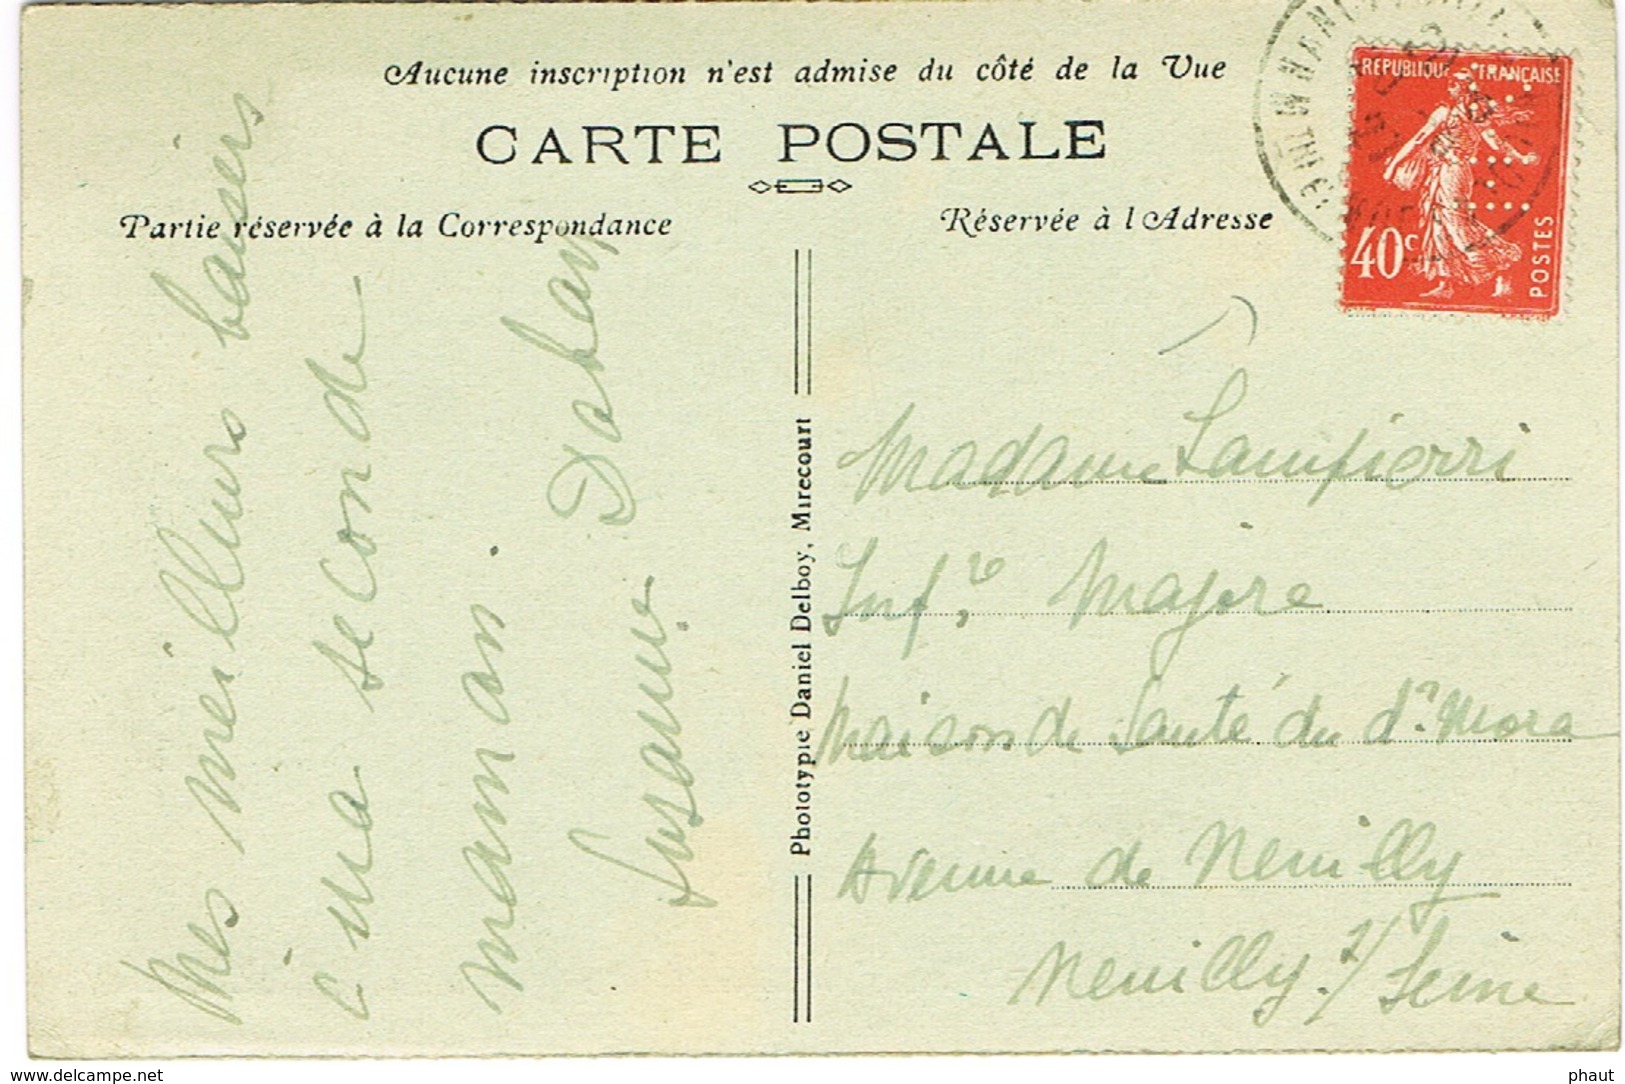 Aucune inscription n'est admise du côté de la Vue
CARTE POSTALE
Partie réservée à la Correspondance
Réservée à l'Adresse
REPUBLIQUE FRANÇAISE
40c
POSTES
Mes meilleurs baisers
à ma seconde
maman.
Suzanne
Phototypie Daniel Delboy, Mirecourt
Madame Lampierri
Inf.re Majore
Maison de Santé du dr. Mora
Avenue de Neuilly
Neuilly s/ Seine
www.delcampe.net
phaut